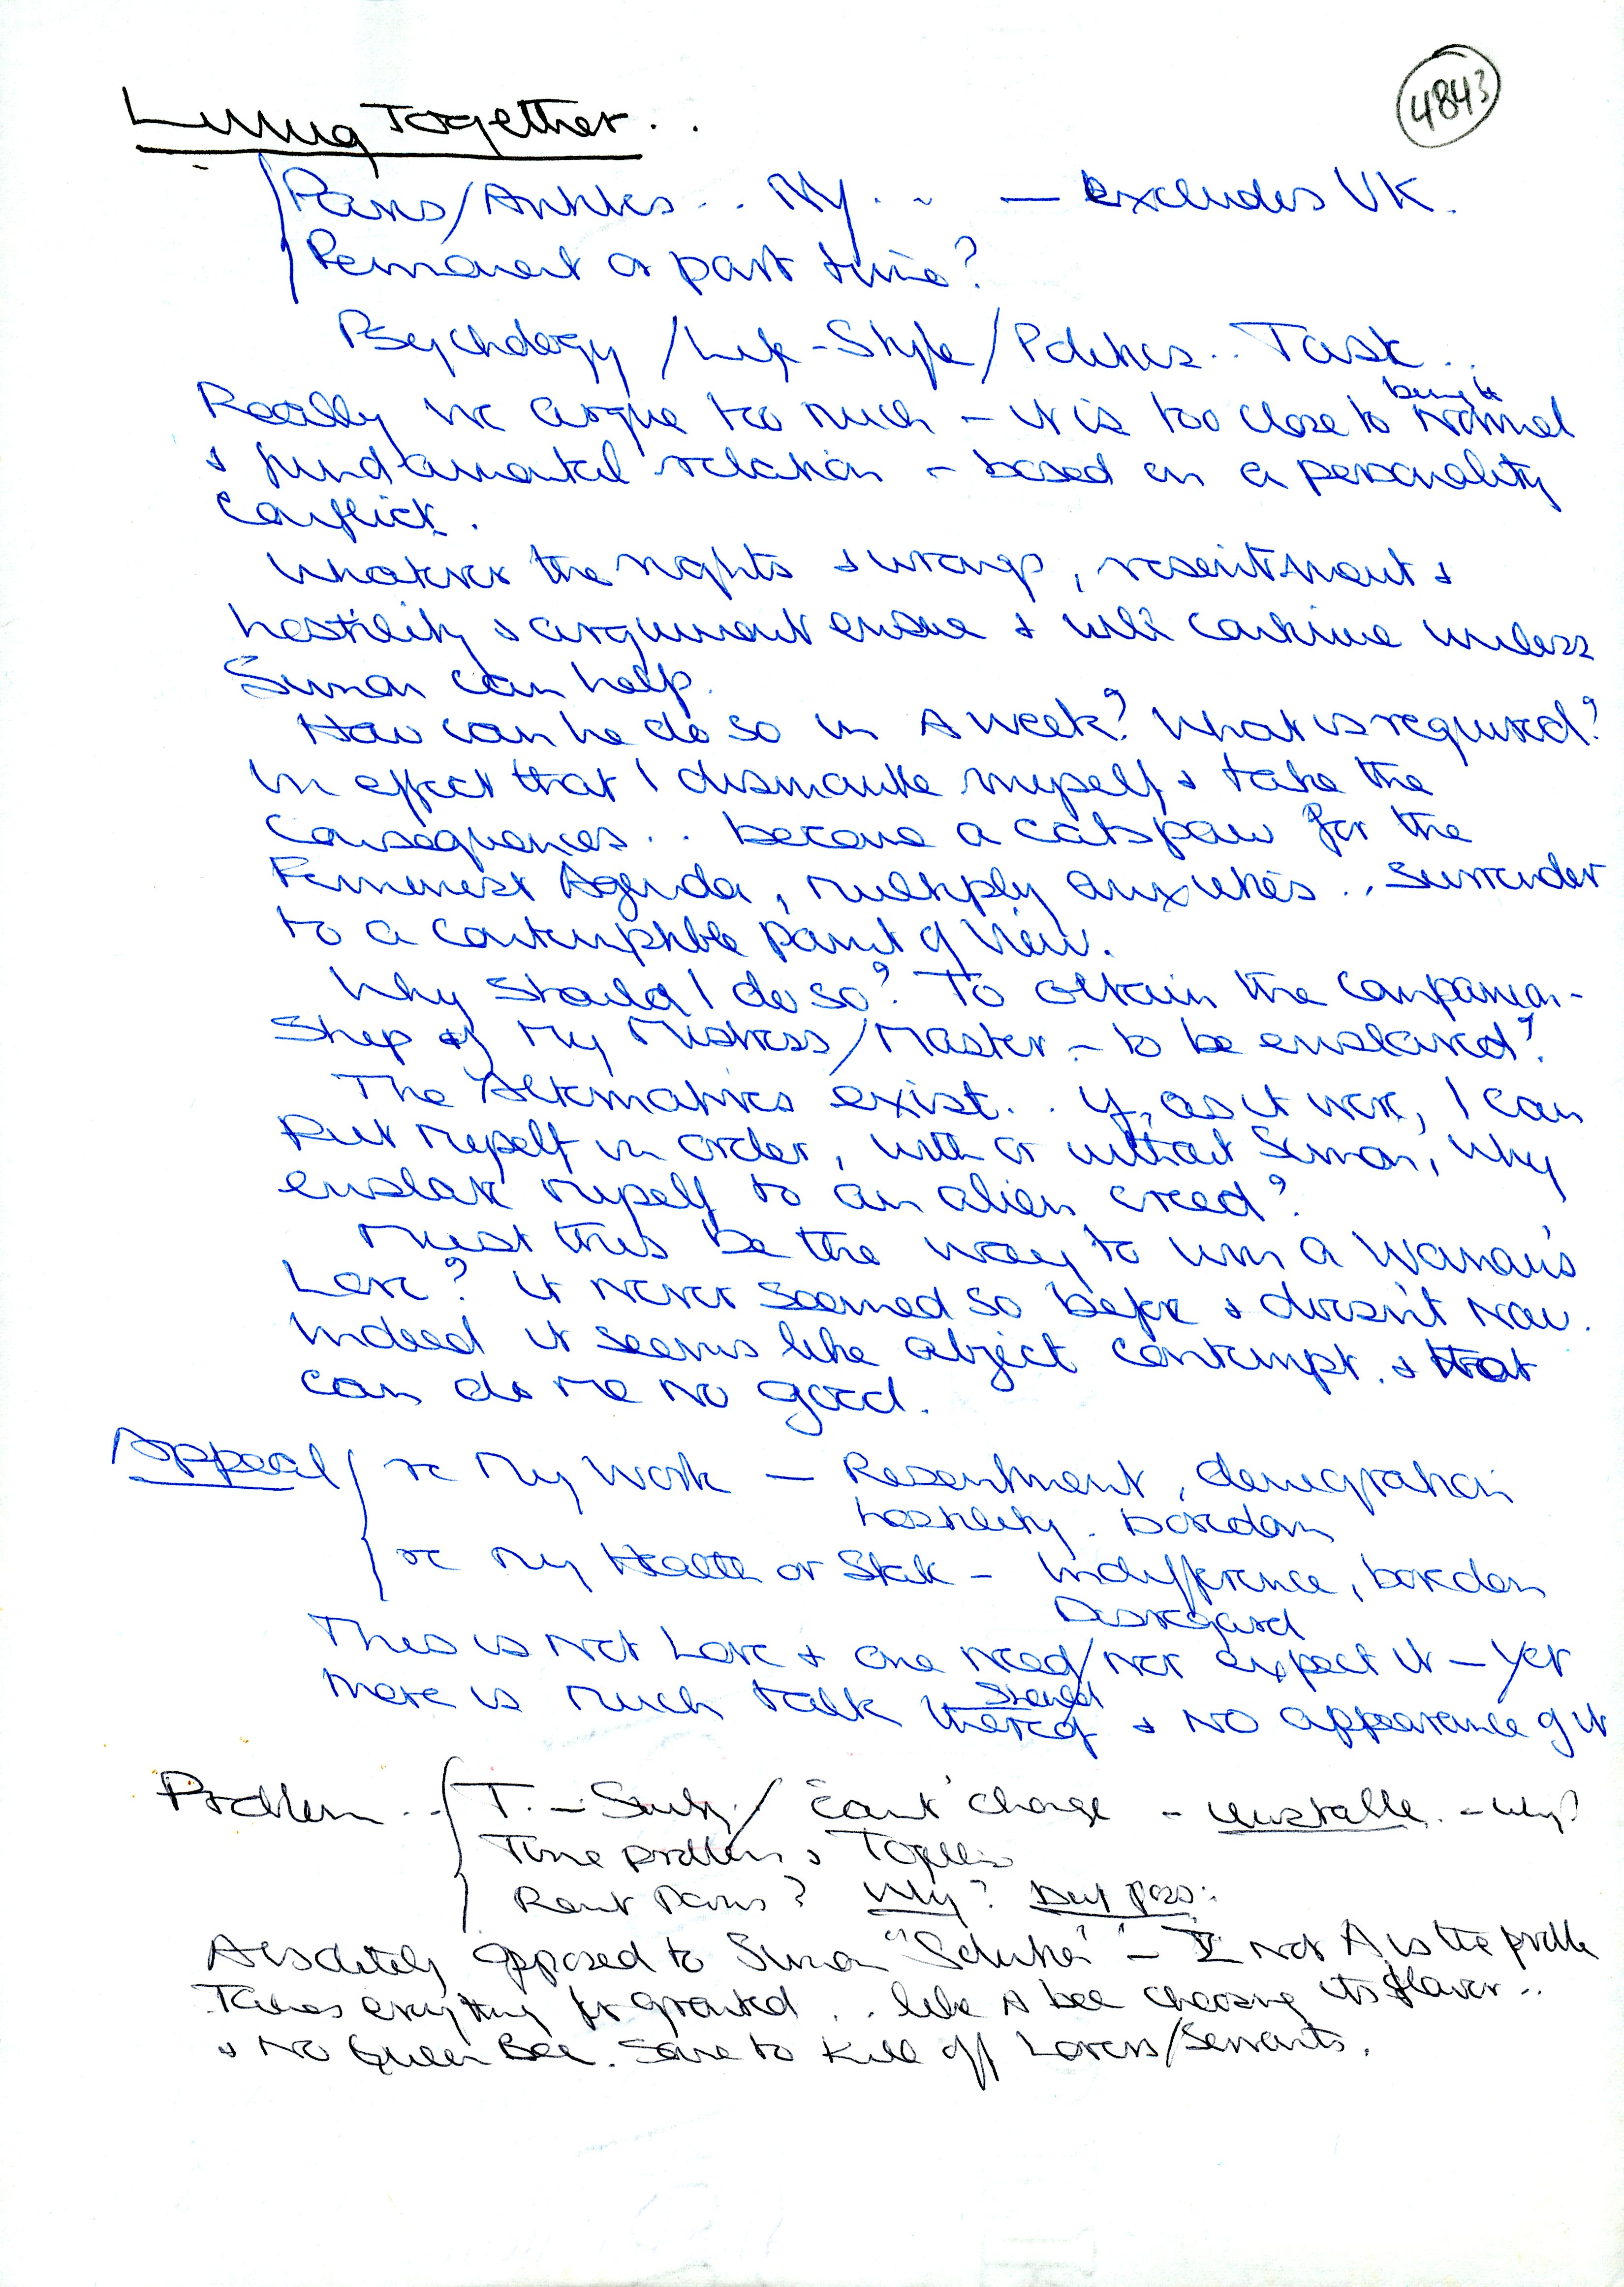 4843
Living Together . .
Paris/Antibes . . NY . . — excludes UK.
Permanent or part time?
Psychology / Life-Style / Politics . . Task . .
Really we argue too much – it is too close to being a normal
& fundamental relation – based on a personality
conflict.
Whatever the rights & wrongs, resentment &
hostility & argument ensue & will continue unless
Simon can help.
How can he do so in a week? What is required?
In effect that I dismantle myself & take the
consequences . . become a catspaw for the
Feminist Agenda, multiply anxieties . . surrender
to a contemptible point of view.
Why should I do so? To obtain the companion-
ship of my Mistress/Master – to be enslaved?
The Alternatives exist . . If, as it were, I can
put myself in order, with or without Simon, why
enslave myself to an alien creed?
Must this be the way to win a Woman's
Love? It never seemed so before & doesn't now.
Indeed it seems like abject contempt. & that
can do me no good.
Appeal / re my work — Resentment, denigration
hostility. boredom
re my Health or State – Indifference, boredom
Disregard
This is not Love & one need/should not expect it – yet
there is much talk thereof & no appearance of it
Problem . . T. – / can't change – unstable. – why?
Time problem &
Rent Paris? Why?
Absolutely opposed to Simon "Solution" – I not A is the problem
Takes everything for granted . . like a bee choosing its flavor . .
& no Queen Bee. Save to kill off Lovers/Servants.